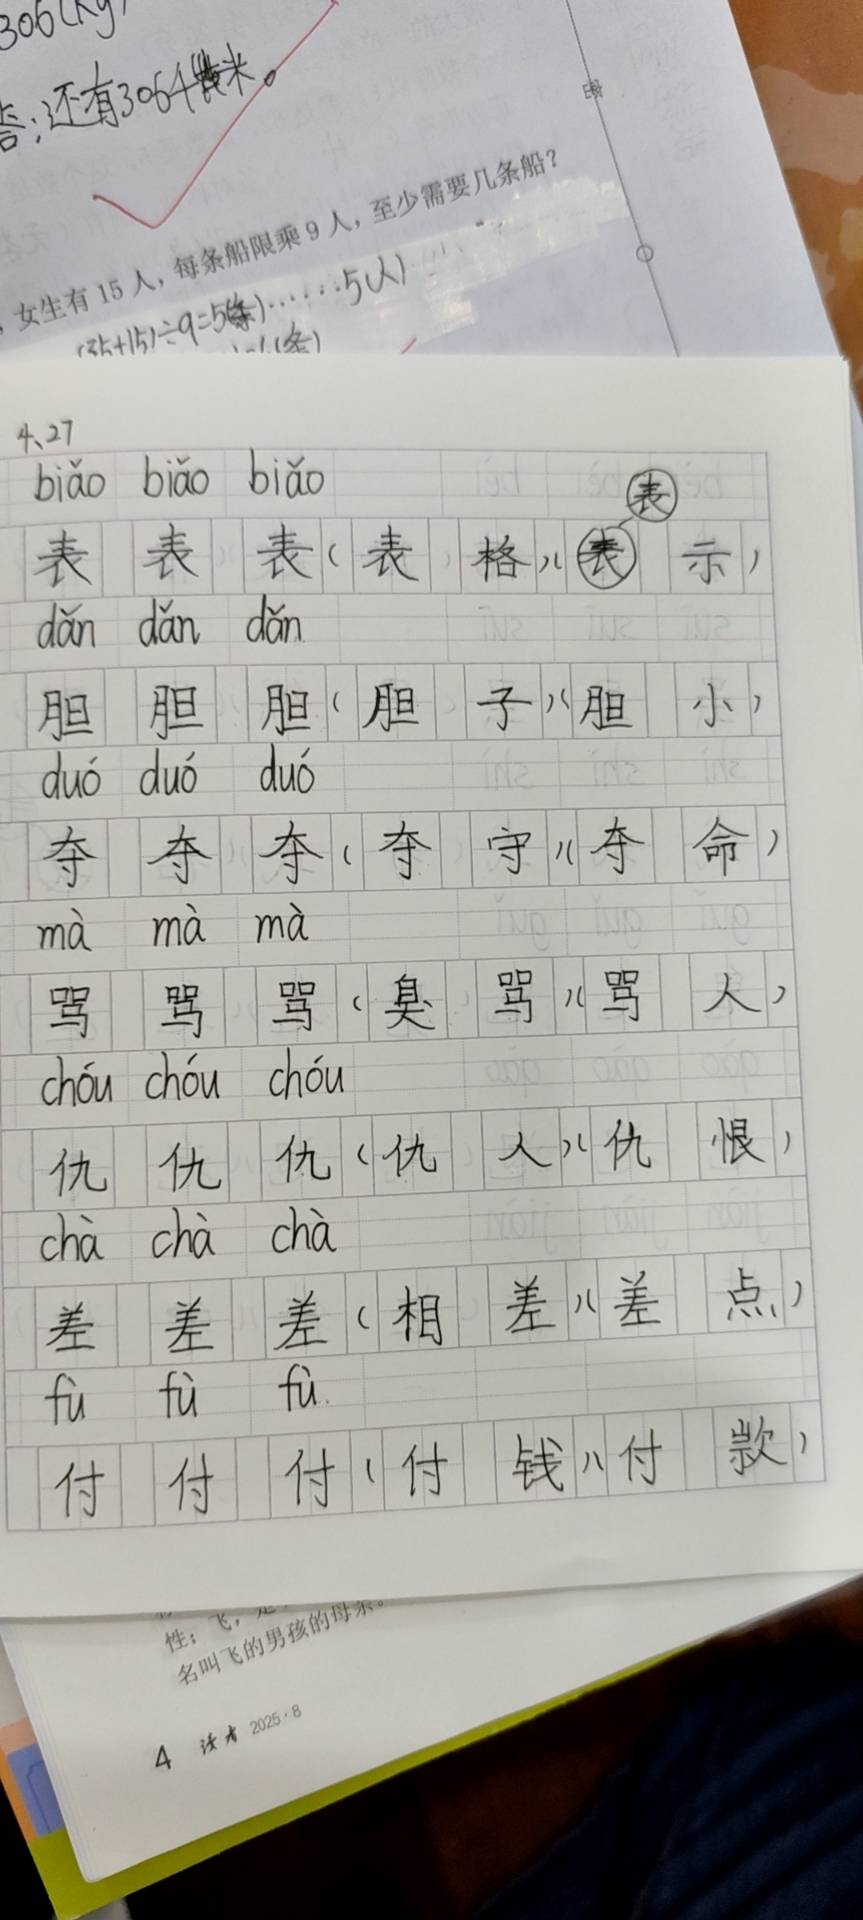 306(kg)
答:还有3064米。
,女生有15人,每条船限乘9人,至少需要几条船?
(35+15)÷9=5(条)……5(人)
(条)
4、27
biǎo biǎo biǎo
表
表 表 表(表 格)(表 示)
dǎn dǎn dǎn
胆 胆 胆(胆 子)(胆 小)
duó duó duó
夺 夺 夺(夺 守)(夺 命)
mà mà mà
骂 骂 骂(臭 骂)(骂 人)
chóu chóu chóu
仇 仇 仇(仇 人)(仇 恨)
chà chà chà
差 差 差(相 差)(差 点)
fù fù fù
付 付 付(付 钱)(付 款)
性;飞,是
名叫飞的男孩的母亲。
4 读者 2025·8